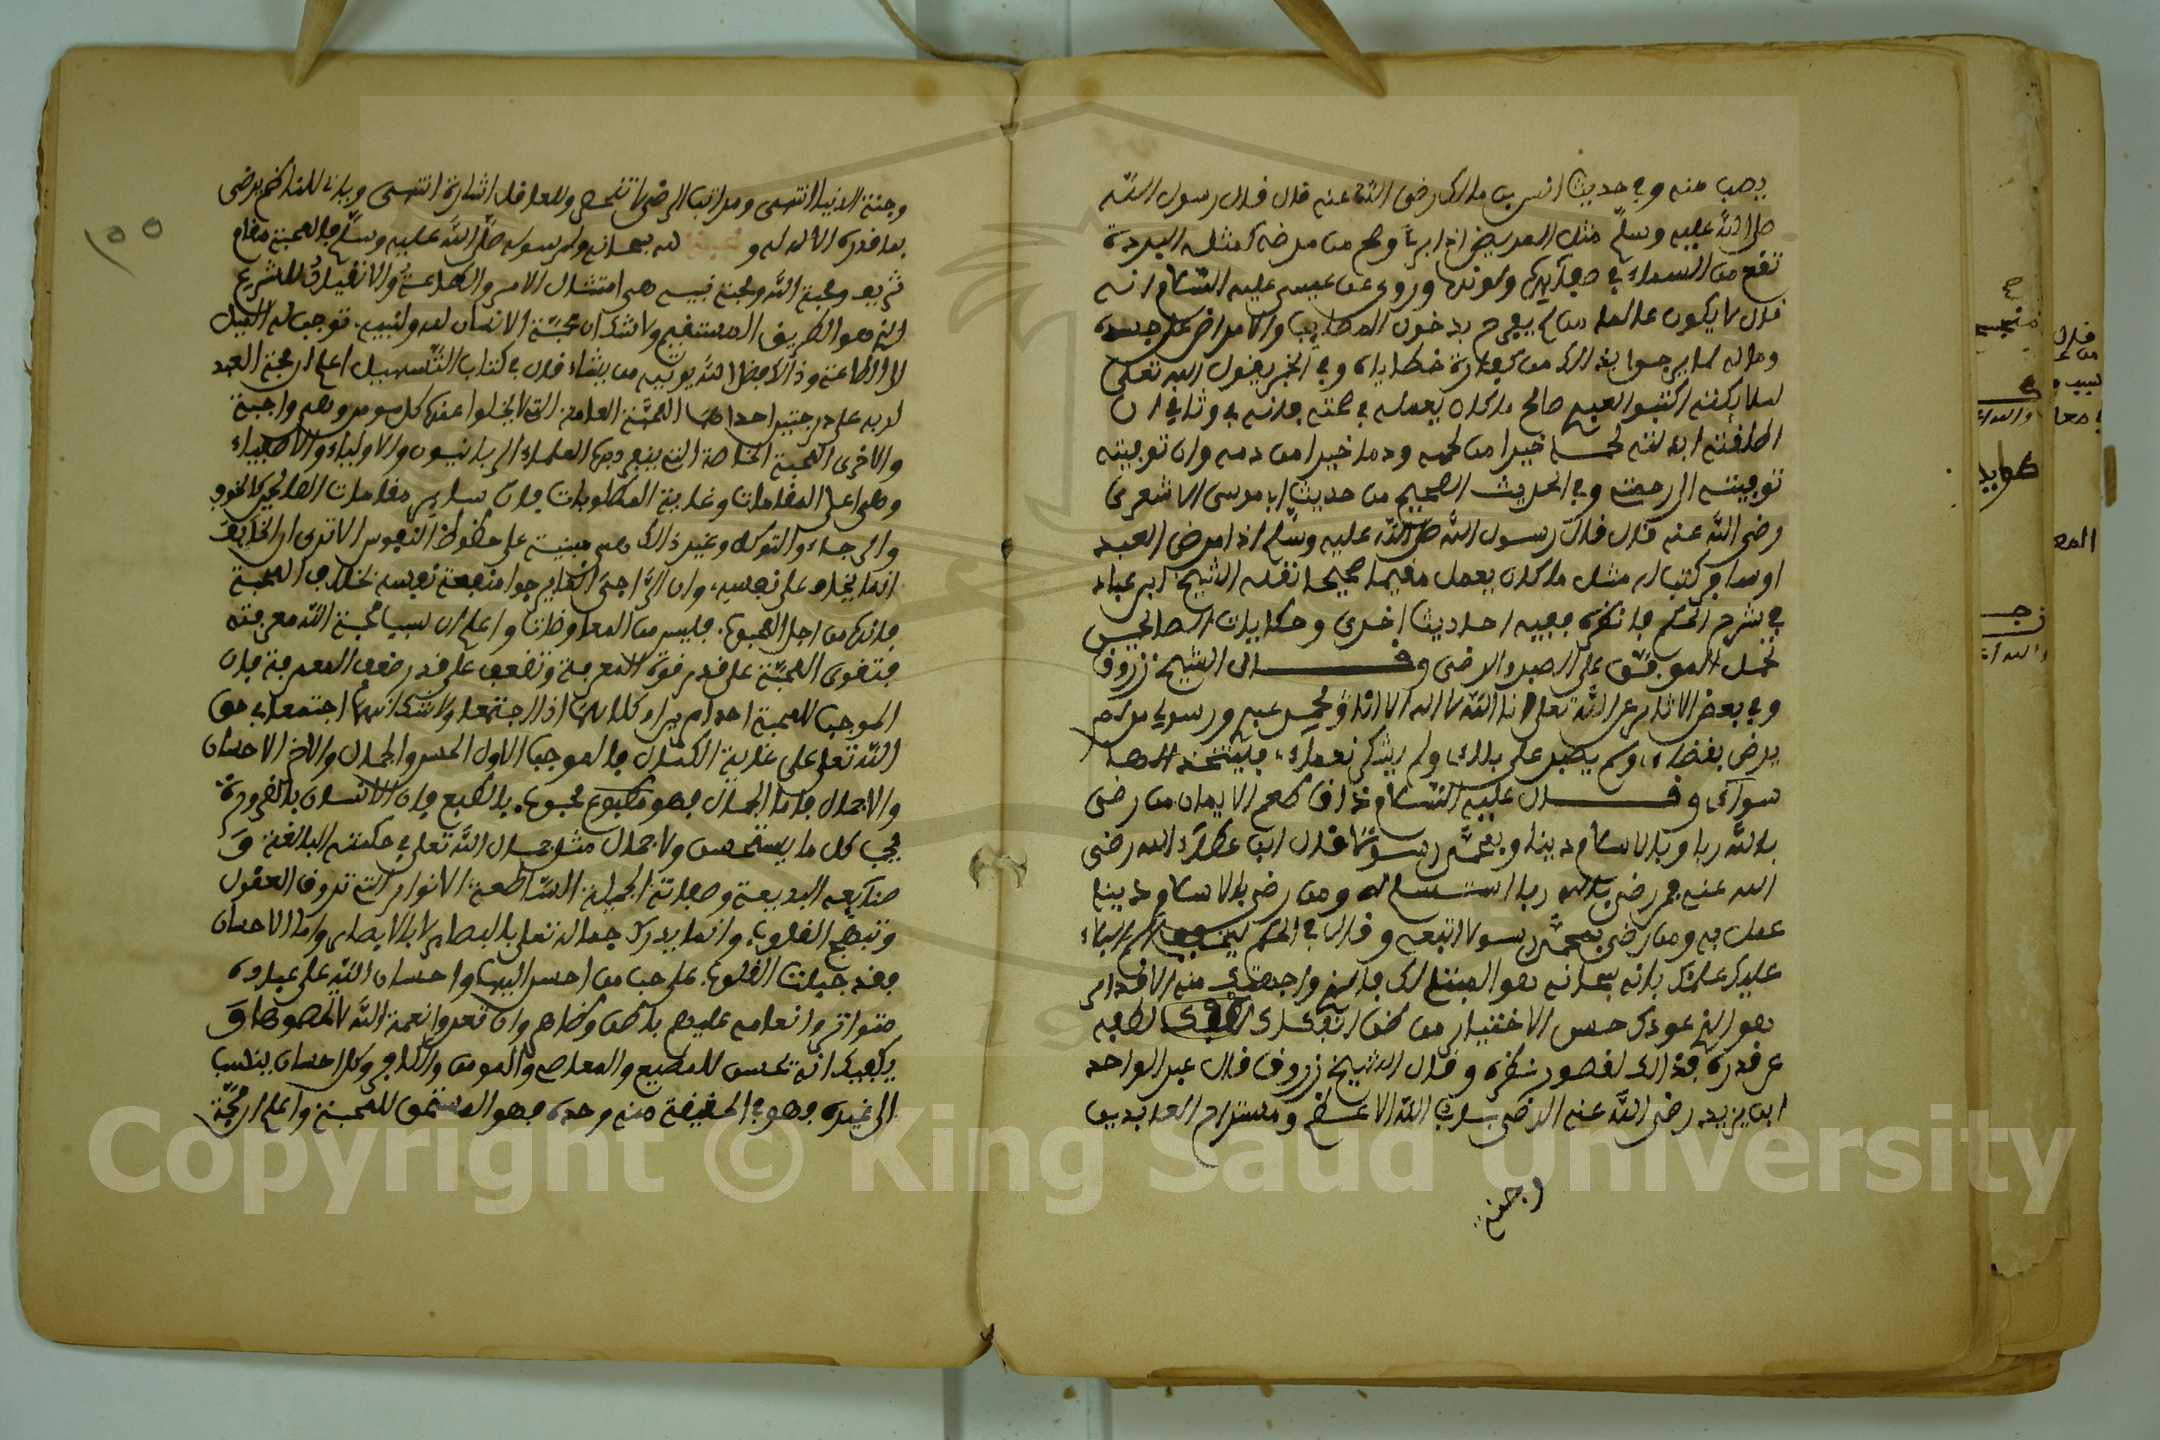 يصب منه وفي حديث انس بن مالك رضي الله عنه قال قال رسول الله
صلى الله عليه وسلم مثل المريض اذا برأ وصح من مرضه كمثل البردة
تقع من السماء في صفائها ولونها وروي عن عيسى عليه السلام انه
قال لا يكون عالما من لم يفرح بدخول المصايب والامراض على جسده
وماله لما يرجو بذالك من كفارة خطاياه وفي الخبر يقول الله تعلى
لملائكته اكتبوا لعبدي صالح ما كان يعمله في صحته فانه في وثاقي ان
اطلقته ابدلته لحما خيرا من لحمه ودما خيرا من دمه وان توفيته
توفيته الى رحمتي وفي الحديث الصحيح من حديث ابا موسى الاشعري
رضي الله عنه قال قال رسول الله صلى الله عليه وسلم اذا مرض العبد
او سافر كتب له مثل ما كان يعمل مقيما صحيحا نقله الشيخ ابن عباد
في شرح الحكم فانظره ففيه احاديث اخرى وحكايات الصالحين
تحمل الموفق على الصبر والرضى وقال الشيخ زروق
وفي بعض الاثار عن الله تعلى انا الله لا اله الا انا ومحمد عبدي ورسولي من لم
يرض بقضاءي ولم يصبر على بلاءي ولم يشكر نعماءي فليتخذ الاها
سواءي وقال عليه السلام ذاق طعم الايمان من رضي
بالله ربا وبالاسلام دينا وبمحمد رسولا قال ابن عطاء الله رضي
الله عنه فمن رضي بالله ربا استسلم له ومن رضي بالاسلام دينا
عمل به ومن رضي بمحمد رسولا اتبعه وقال في الحكم ليخفف الم البلاء
عليك علمك بانه سبحانه هو المبتلي لك فالذي واجهتك منه الاقدار
هو الذي عودك حسن الاختيار من ظن انفكاك لطفه
عن قدره فذالك لقصور نظره وقال الشيخ زروق قال عبد الواحد
ابن يزيد رضي الله عنه الرضى باب الله الاعظم ومستراح العابدين
وجنة
١٥٥
وجنة الدنيا انتهى ومراتب الرضى لا تنحصر وللعاقل اشارة انتهى
بما قدره الاله له و لله سبحانه ولرسوله صلى الله عليه وسلم فالمحبة مقام
شريف ومحبة الله ومحبة نبيه هي امتثال الامر والطاعة والانقياد للشريع
الذي هو الطريق المستقيم ولا شك ان محبة الانسان لله ولنبيه توجب له الميل
لا الطاعة وذالك فضل الله يوتيه من يشاء قال في كتاب التسهيل اعلم ان محبة العبد
لربه على درجتين احداهما المحبة العامة التي لا يخلوا عنها كل مومن وهي واجبة
والاخرى المحبة الخاصة التي ينفرد بها العلماء الربانيون والاولياء والاصفياء
وهي اعلى المقامات وغاية المطلوبات فان ساير مقامات الصالحين كالخوف
والرجاء والتوكل وغير ذالك فهي مبنية على حظوظ النفوس الا ترى ان الخايف
انما يخاف على نفسه وان الراجي انما يرجو منفعة نفسه بخلاف المحبة
فانها من اجل المحبوب فليس من المعاوضات واعلم ان سبب محبة الله معرفته
فتقوى المحبة على قدر قوة المعرفة وتضعف على قدر ضعف المعرفة فان
الموجب للمحبة احد امرين او كلاهما اذا اجتمعا ولا شك انهما اجتمعا في حق
الله تعلى على غاية الكمال فالموجب الاول الحسن والجمال والاخر الاحسان
والاجمال فاما الجمال فهو محبوب بالطبع فان الانسان بالضرورة
يحب كل ما يستحسن ولا جمال مثل جمال الله تعلى في حكمته البالغة و
صنايعه البديعة وصفاته الجميلة الساطعة الانوار التي تروق العقول
وتبهج القلوب وانما يدرك جماله تعلى بالبصاير لا بالابصار واما الاحسان
فقد جبلت القلوب على حب من احسن اليها واحسان الله على عباده
متواتر وانعامه عليهم باطن وظاهر وان تعدوا نعمة الله لا تحصوها و
يكفيك انه يحسن للمطيع والعاصي والمومن والكافر وكل احسان ينسب
الى غيره فهو في الحقيقة منه وحده فهو المستحق للمحبة واعلم ان محبة